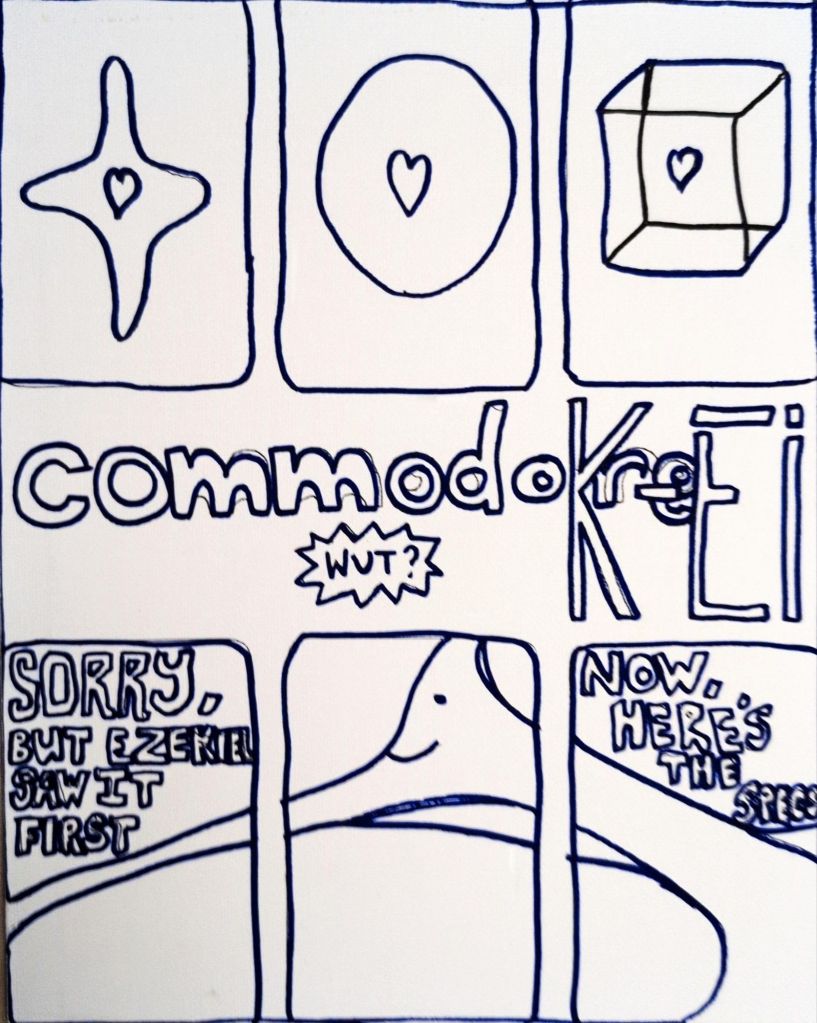 commodore K-Ei
WUT?
SORRY,
BUT EZEKIEL
SAW IT
FIRST
NOW,
HERE'S
THE
SPECS